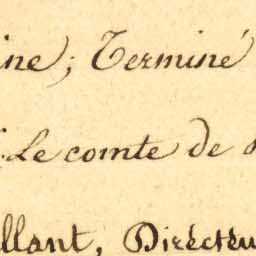 ine; Terminé
Le comte de
llant, Directeu